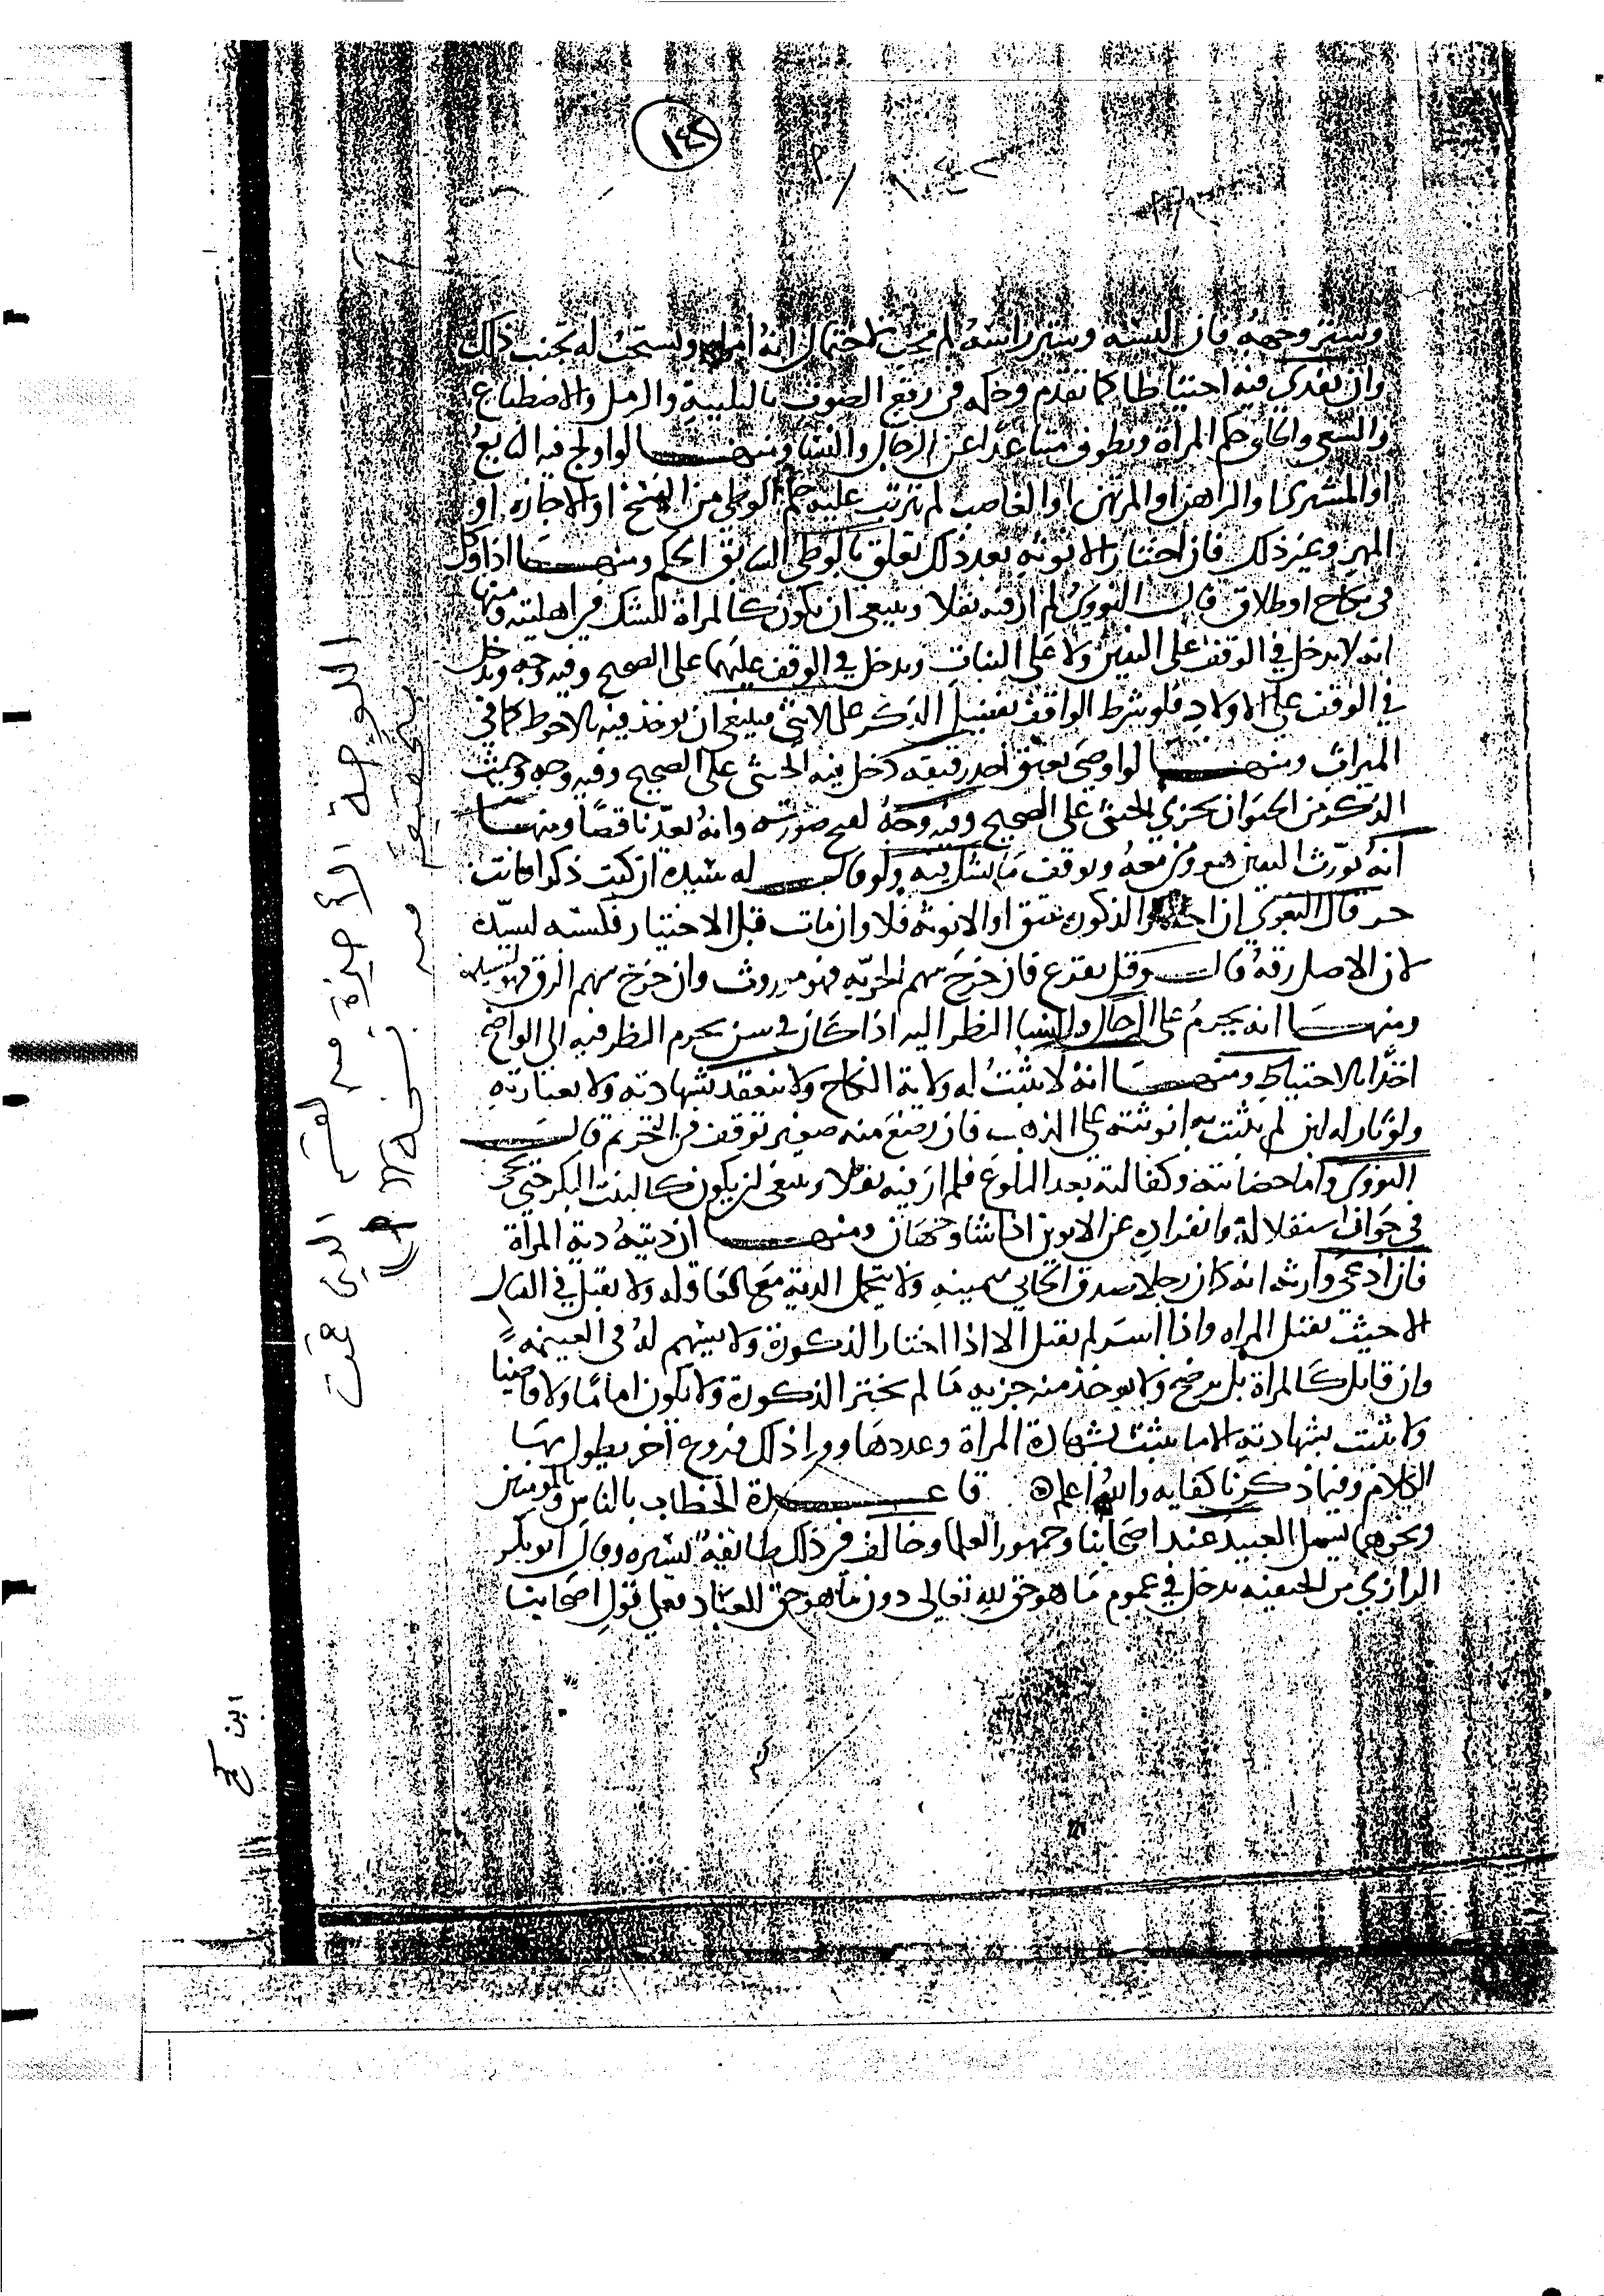 ١٤٢
وستر وجهه فان لبسه وستر راسه لم يجب لاحتمال انه امراة ويستحب له تجنب ذلك
وان يفدى فيه احتياطا كما تقدم وحكمه في رفع الصوت بالتلبية والرمل والاضطباع
والسعى والحلق حكم المراة ويطوف متباعدا عن الرجال والنسا ومنها لو اولج فيه البايع
او المشترى او الراهن او المرتهن او الغاصب لم يترتب عليه حكم الوطى من الفسخ او الاجازه او
المهر وغير ذلك فان اختار الانوثه بعد ذلك تعلق بالوطى السابق الحكم ومنها اذا وكل
في نكاح او طلاق قال النووي لم ار فيه نقلا وينبغي ان يكون كالمراة للشك في اهليته ومنها
انه لا يدخل في الوقف على البنين ولا على البنات ويدخل في الوقف عليهما على الصحيح وفيه وجه ويدخل
في الوقف على الاولاد فلو شرط الواقف تفضيل الذكر على الانثى فينبغى ان يوخذ فيه بالاحوط كما في
الميراث ومنها لو اوصى بعتق احد رقيقه دخل فيه الخنثى على الصحيح وفيه وجه وحيث
الذكر من الحيوان يجزي الخنثى على الصحيح وفيه وجه لقبح صورته وانه يعد ناقصا ومنها
انه يورث اليقين هو ومن معه ويوقف ما يشك فيه ولو قال له سيده ان كنت ذكرا فانت
حر قال البغوي ان اختار الذكورة عتق او الانوثه فلا وان مات قبل الاختيار فكسبه لسيده
لان الاصل رقه قال وقيل يقرع فان خرج سهم الحريه فهو موروث وان خرج سهم الرق فهو لسيده
ومنها انه يحرم على الرجال والنسا النظر اليه اذا كان في سن يحرم النظر فيه الى الواضح
اخذا بالاحتياط ومنها انه لا يثبت له ولاية النكاح ولا ينعقد بشهادته ولا بعبارته
ولو ثار له لبن لم يثبت به انوثته على المذهب فان رضع منه صغير توقف في التحريم قال
النووي واما حضانته وكفالته بعد البلوغ فلم ار فيه نقلا وينبغى ان يكون كالبنت البكر حتى يجي
في جواز استقلاله وانفراده عن الابوين اذا شا وجهان ومنها ان ديته دية المراة
فان ادعى وارثه انه كان رجلا صدق الجاني بيمينه ولا يتحمل الدية مع العاقله ولا يقتل في القتال
الا حيث يقتل المراه واذا اسر لم يقتل الا اذا اختار الذكورة ولا يسهم له في الغنيمة
وان قاتل كالمراة بل يرضخ ولا يوخذ منه جزيه ما لم يختر الذكورة ولا يكون اماما ولا قاضيا
ولا يثبت بشهادته الا ما يثبت بشهادة المراة وعددها وورا ذلك فروع اخر يطول بها
الكلام وفيما ذكرنا كفايه والله اعلم قاعدة الخطاب بالناس والمومنين
ونحوهما يشمل العبيد عند اصحابنا وجمهور العلما وخالف في ذلك طائفة يسيره وقال ابو بكر
الرازي من الحنفيه يدخل في عموم ما هو حق لله تعالى دون ما هو حق للعباد فعلى قول اصحابنا